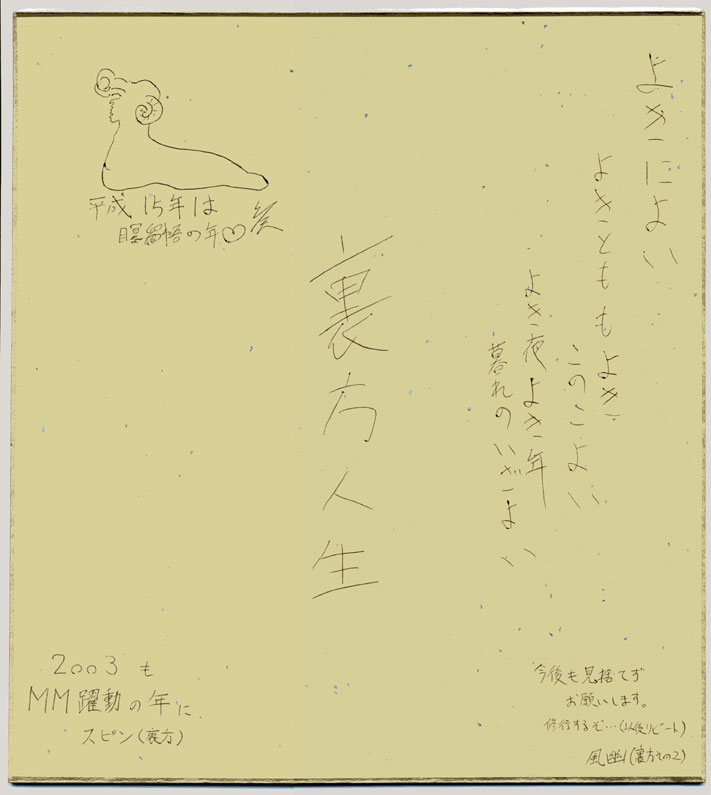 よきによい
よきとも もよき
このこよい
よき夜よき年
暮れのいざよい
裏方人生
平成15年は
瞑留悟の年♡
2003も
MM躍動の年に
スピン(裏方)
今後も見捨てず
お願いします。
修行するぞ…(以後リピート)
風幽(裏方その2)